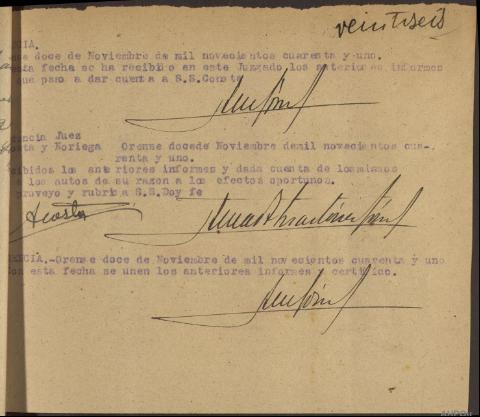 veintiseis
ENCIA.
nse doce de Noviembre de mil novecientos cuarenta y uno.
esta fecha se ha recibido en este Juzgado los anteriores informes
que paso a dar cuenta a S.S. Consta
encia Juez
osta y Noriega Orense docede Noviembre demil novecientos cua-
renta y uno.
cibidos los anteriores informes y dada cuenta de losmismos
a los autos de su razon a los efectos oportunos.
proveyo y rubrica S.S. Doy fe
Acosta
ENCIA.-Orense doce de Noviembre de mil novecientos cuarenta y uno
Con esta fecha se unen los anteriores informes y certifico.